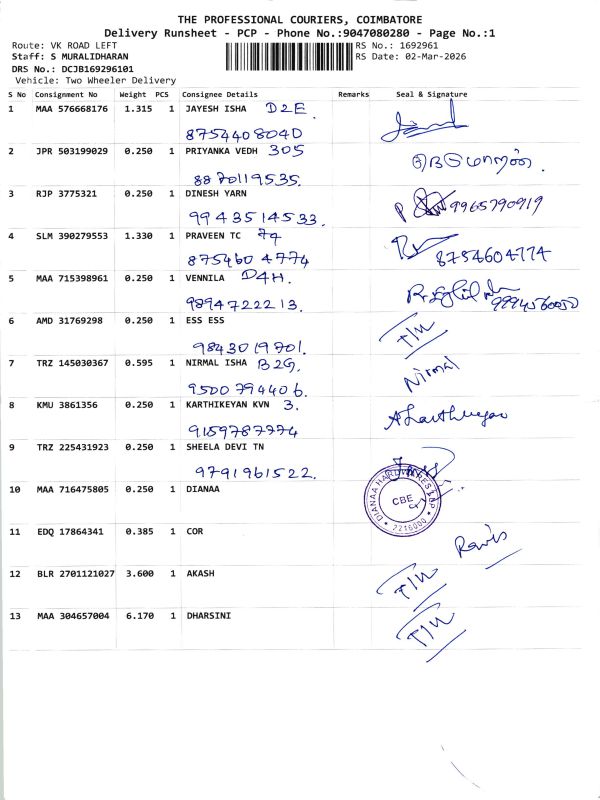 THE PROFESSIONAL COURIERS, COIMBATORE
Delivery Runsheet - PCP - Phone No.:9047080280 - Page No.:1
Route: VK ROAD LEFT
Staff: S MURALIDHARAN
DRS No.: DCJB169296101
Vehicle: Two Wheeler Delivery
RS No.: 1692961
RS Date: 02-Mar-2026
S No Consignment No Weight PCS Consignee Details Remarks Seal & Signature
1 MAA 576668176 1.315 1 JAYESH ISHA D2E
8754408040
2 JPR 503199029 0.250 1 PRIYANKA VEDH 305
8870119535.
3 RJP 3775321 0.250 1 DINESH YARN
9943514533. 9965790919
4 SLM 390279553 1.330 1 PRAVEEN TC 79
8754604774 8754604774
5 MAA 715398961 0.250 1 VENNILA D4H.
9894722213. 9994560050
6 AMD 31769298 0.250 1 ESS ESS T/W
9843019701.
7 TRZ 145030367 0.595 1 NIRMAL ISHA B2G. Nirmal
9500794406.
8 KMU 3861356 0.250 1 KARTHIKEYAN KVN 3.
9159787774
9 TRZ 225431923 0.250 1 SHEELA DEVI TN
9791961522.
10 MAA 716475805 0.250 1 DIANAA
CBE
11 EDQ 17864341 0.385 1 COR Ravis
12 BLR 2701121027 3.600 1 AKASH T/W
13 MAA 304657004 6.170 1 DHARSINI T/W